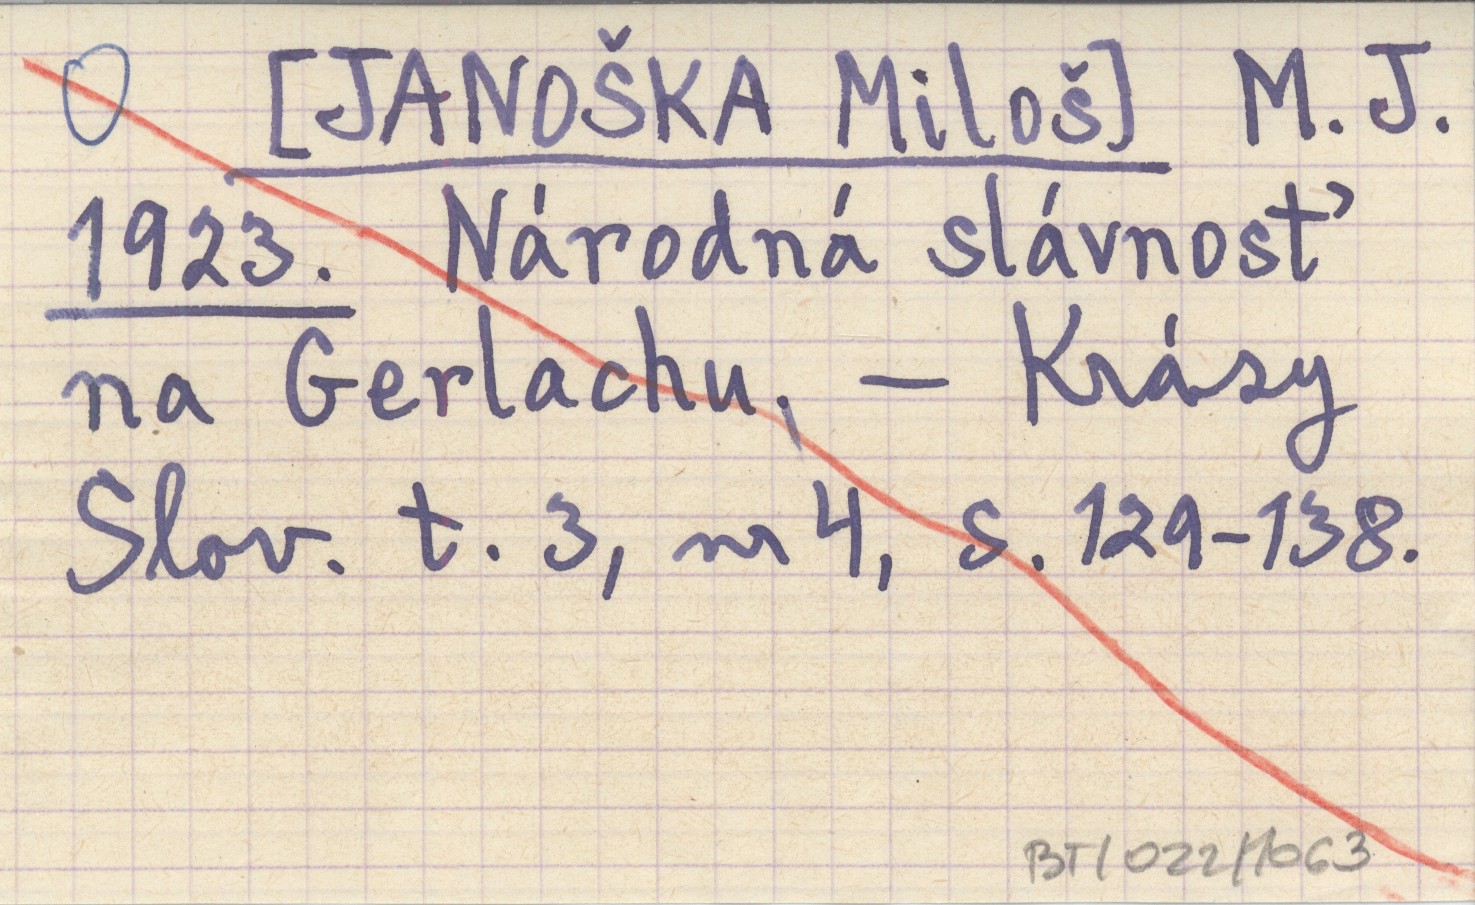 O [JANOŠKA Miloš] M. J.
1923. Národná slávnosť
na Gerlachu. — Krásy
Slov. t. 3, nr 4, s. 129-138.
BT/022/1063